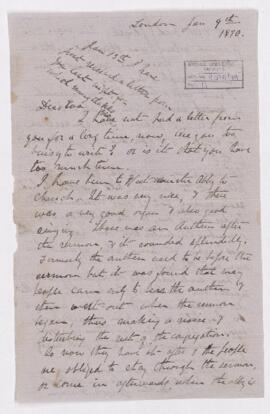 London Jan 9th
1890.
Jan 13th I have
just received a letter from
you last night for
which many thanks
I have not had a letter from
you for a long time, now, are you too
busy to write? or is it that you have
too much time.
I have been to Westminster Abby to
Church. It was very nice, & there
was a very good organ & also good
singing. There was an Anthem after
the sermon, & it sounded splendidly.
Formerly the anthem used to be before the
sermon but it was found that many
people came only to hear the anthem &
then went out when the sermon
began, thus making a noise &
disturbing the rest of the congregation.
So now they have it after & the people
are obliged to stay through the sermon,
or come in afterwards, when the Abby is